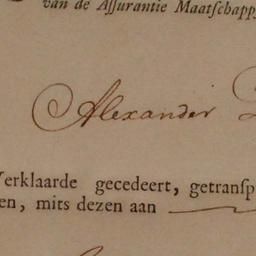 van de Aſſurantie Maatſchappy
Alexander
Verklaarde gecedeert, getranſp
en, mits dezen aan